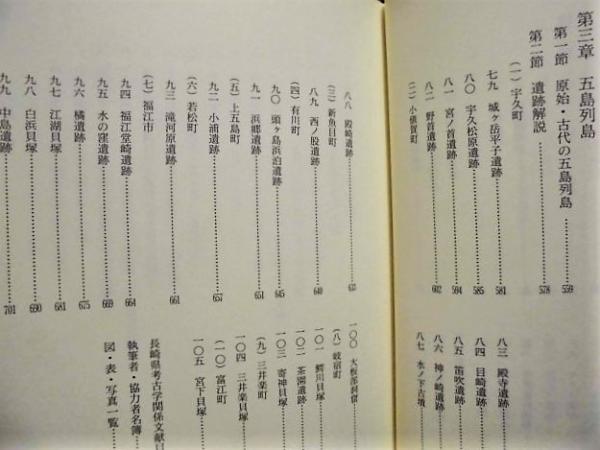 第三章 五島列島
第一節 原始・古代の五島列島 559
第二節 遺跡解説 578
(一) 宇久町
七九 城ヶ岳平子遺跡 581
八〇 宇久松原遺跡 585
八一 宮ノ首遺跡 594
八二 野首遺跡 602
(二) 小値賀町
八三 殿寺遺跡
八四 目崎遺跡
八五 笛吹遺跡
八六 神ノ崎遺跡
八七 水ノ下古墳
八八 殿崎遺跡
(三) 新魚目町
八九 西ノ股遺跡 640
(四) 有川町
九〇 頭ヶ島浜泊遺跡 645
九一 浜郷遺跡 651
(五) 上五島町
九二 小浦遺跡 657
(六) 若松町
九三 滝河原遺跡 661
(七) 福江市
九四 福江堂崎遺跡 664
九五 水の窪遺跡 669
九六 橘遺跡 675
九七 江湖貝塚 681
九八 白浜貝塚 690
九九 中島遺跡 701
一〇〇 大板部洞窟
(八) 岐宿町
一〇一 鰐川貝塚
一〇二 茶園遺跡
一〇三 寄神貝塚
(九) 三井楽町
一〇四 三井楽貝塚
(一〇) 富江町
一〇五 宮下貝塚
長崎県考古学関係文献目
執筆者・協力者名簿
図・表・写真一覧